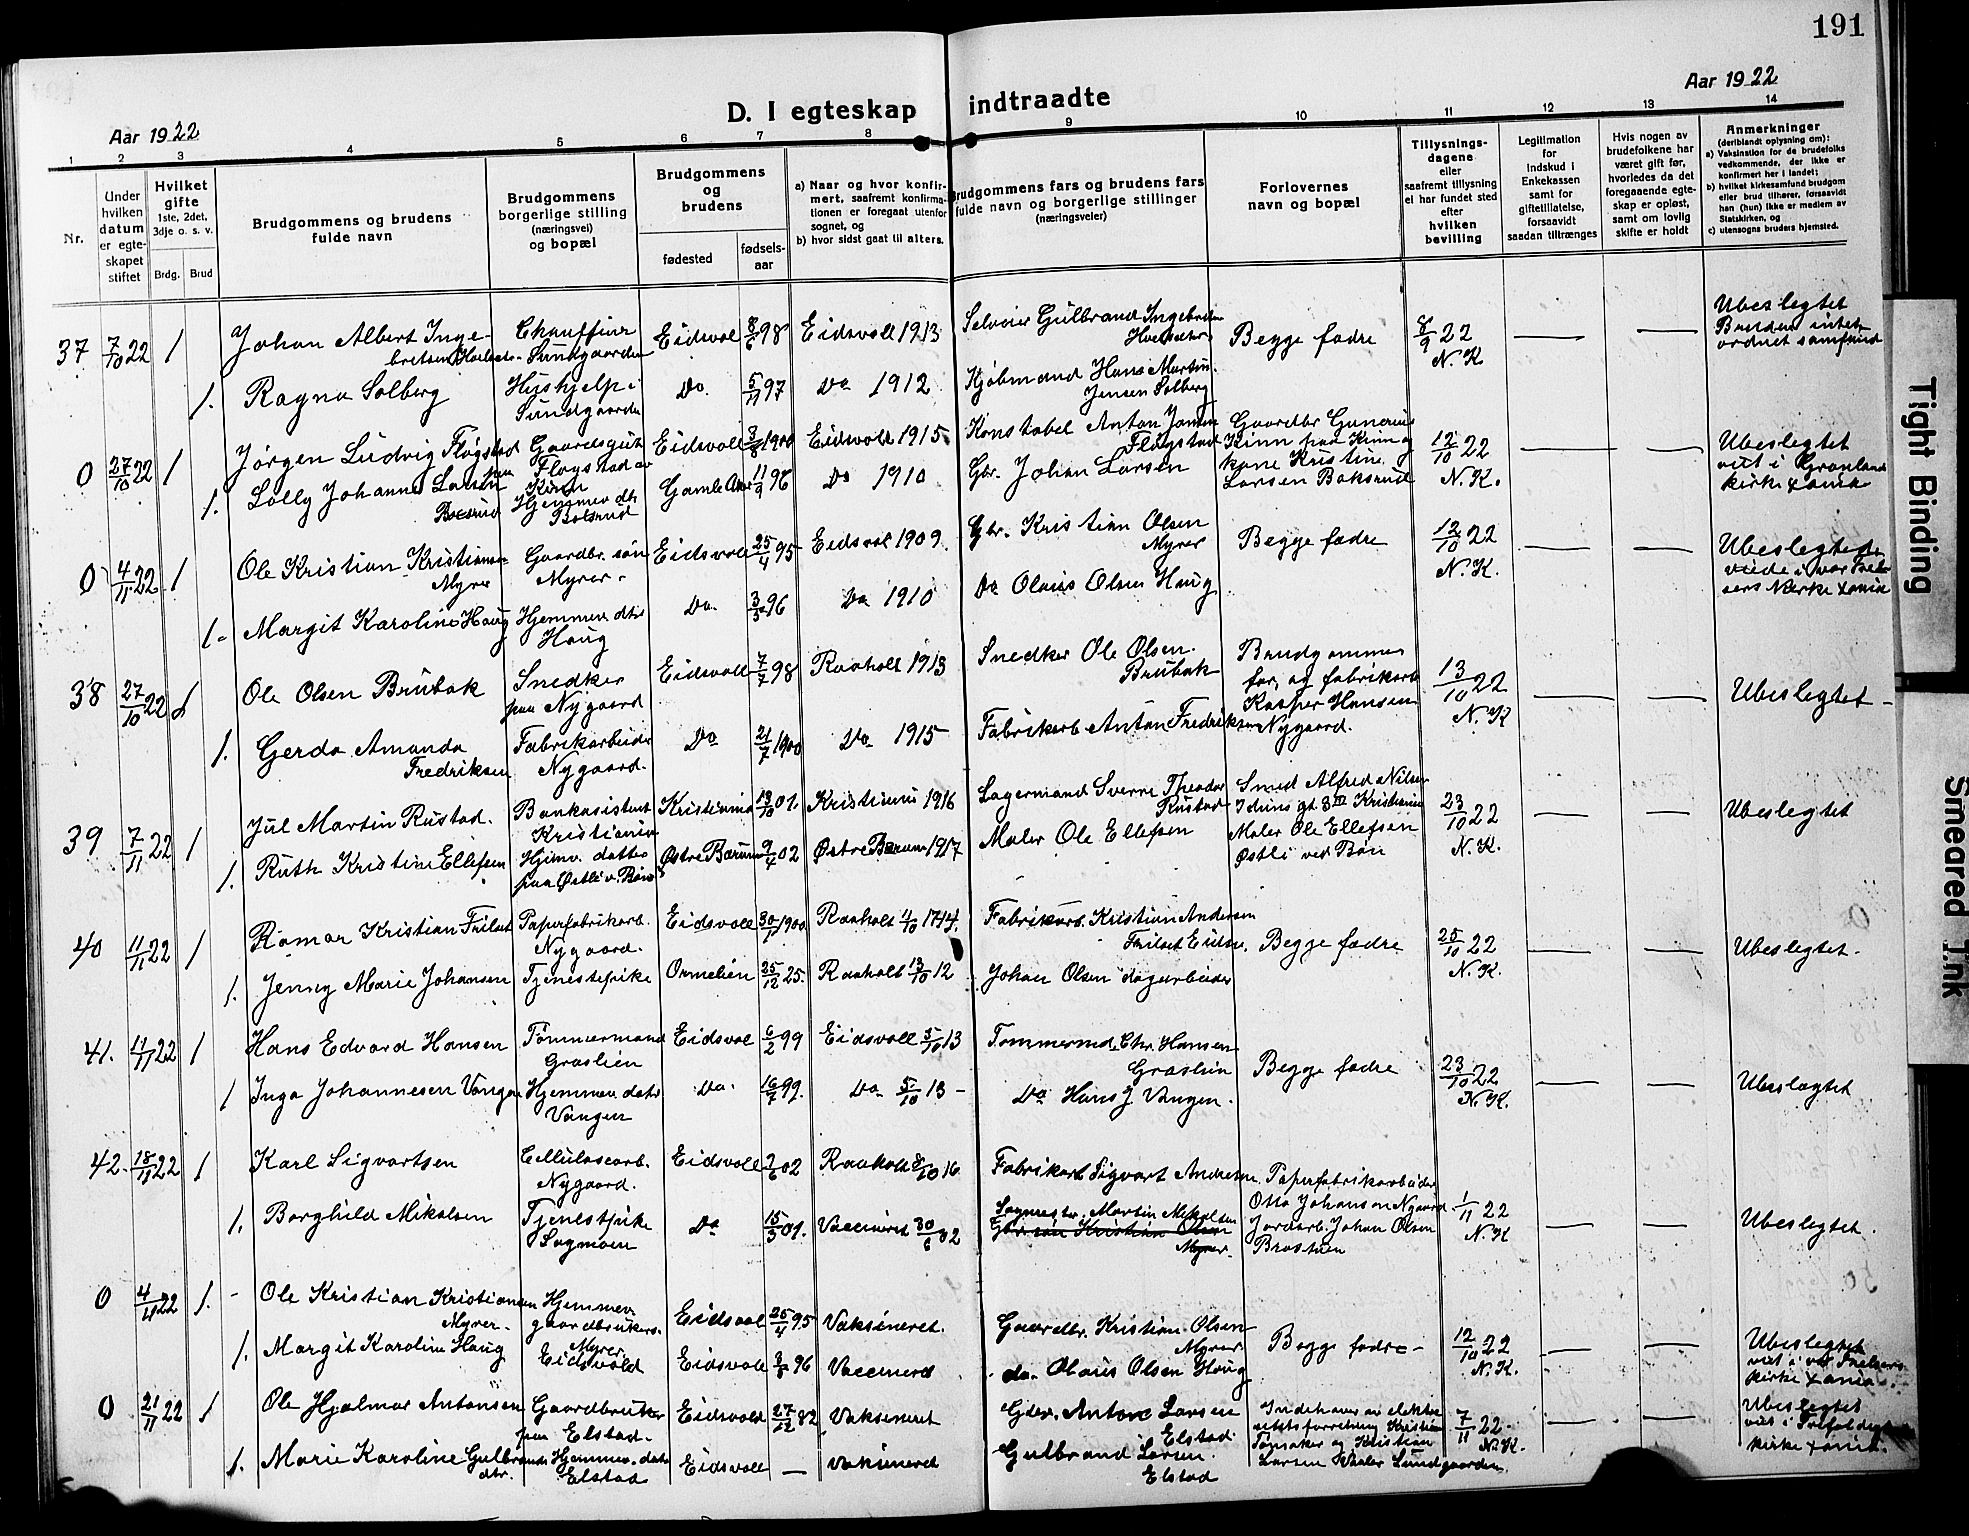 191
Aar 1922
D. I egteskap indtraadte
Aar 1922
1 2 3 4 5 6 7 8 9 10 11 12 13 14
Nr.
Under hvilken datum er egteskapet stiftet
Hvilket gifte 1ste, 2det, 3dje o. s. v.
Brdg. Brud
Brudgommens og brudens fulde navn
Brudgommens borgerlige stilling (næringsvei) og bopæl
Brudgommens og brudens
fødested
fødsels-aar
a) Naar og hvor konfirmert, saafremt konfirmationen er foregaat utenfor sognet, og
b) hvor sidst gaat til alters.
Brudgommens fars og brudens fars fulde navn og borgerlige stillinger (næringsveier)
Forlovernes navn og bopæl
Tillysnings-dagene eller saafremt tillysning ei har fundet sted efter hvilken bevilling
Legitimation for indskud i Enkekassen samt for giftetillatelse, forsaavidt saadan tiltrænges
Hvis nogen av brudefolkene har været gift før, hvorledes da det foregaaende egteskap er opløst, samt om lovlig skifte er holdt
Anmerkninger (deriblandt oplysning om):
a) Vaksination for de brudefolks vedkommende, der ikke er konfirmert her i landet;
b) hvilket kirkesamfund brudgom eller brud tilhører, forsaavidt han (hun) ikke er medlem av Statskirken, og
c) utensogns bruders hjemsted.
37 7/10 22 1 Johan Albert Ingebretsen Chauffeur Sundgaarden Eidsvol 8/6 98 Eidsvoll 1913 Selveier Gulbrand Ingebretsen Begge fædre 8/9 22 N. K Ubeslegtet Bruden intet ordnet samfund
1. Ragna Solberg Hushjelp Sundgaarden Do. 5/11 97 Do 1912 Kjøbmand Hans Martin Jensen Solberg
0 27/10 22 1 Jørgen Ludvig Fløgstad Gaardsgut Fløgstad Eidsvoll 3/8 1900 Eidsvoll 1915 Konstabel Anton Jansen Fløgstad Gaardbr Gunerius Kinn paa Kinn og 12/10 22 N. K. Ubeslegtet viet i Grønland kirke Xania
1. Lolly Johanne Larsen Hjemmev dtr 11/9 96 Do 1910 Gbr. Johan Larsen kone Kristine Larsen Baksrud
0 4/11 22 1 Ole Kristian Kristiansen Myrer Gaardbr. søn Myrer Eidsvoll 25/4 95 Eidsvol 1909. Gbr. Kristian Olsen Myrer Begge fædre 12/10 22 N. K. Ubeslegtede viede i vor Frelsers Kirke Xania
1. Margit Karoline Haug Hjemmev dtr Haug Do. 3/5 96 Do 1910 Do Olaus Olsen Haug
38 27/10 22 1 Ole Olsen Brubak Snedker paa Nygaard Eidsvoll 7/7 98 Raaholt 1913 Snedker Ole Olsen Brubak Brudgommens far, og fabrikarb Kasper Hansen Nygaard. 13/10 22 N. K Ubeslegtet
1. Gerda Amanda Fredriksen Fabrikarbeider Nygaard Do 21/7 1900 Do 1915 Fabrikarb Anton Fredriksen
39 7/11 22 1 Jul Martin Rustad. Bankasistent Kristiania Kristiania 13/10 01. Kristiania 1916 Lagermand Sverre Theodor Rustad Smed Alfred Nilsen Idunsgt 3 III Kristiania 23/10 22 N. K. Ubeslegtet
1. Ruth Kristine Ellefsen Hjemv. datter paa Østli v. Bøn Østre Bærum 9/7 02 Østre Bærum 1917 Maler Ole Ellefsen Maler Ole Ellefsen Østli ved Bøn
40 11/11 22 1 Ramar Kristian Frilset Papirfabrikarb. Nygaard. Eidsvoll 30/1 1900 Raaholt Fabrikarb. Kristian Andersen Frilset Begge fædre 25/10 22 N. K. Ubeslegtet.
1. Jenny Marie Johansen Tjenestepike Ormelien 25/12 25. Raaholt 13/10 12 Johan Olsen dagarbeider
41. 11/11 22 1 Hans Edvard Hansen Tømmermand Graslien Eidsvol 6/2 99 Eidsvoll 5/10 13 Tømmermd. Chr. Hansen Graslien Begge fædre 23/10 22 N. K. Ubeslægtet
1 Inga Johannesen Vangen Hjemmev datr Vangen Do. 16/7 99. Do 5/10 13 Do Hans J. Vangen.
42. 18/11 22 1 Karl Sigvartsen Cellulosearb. Nygaard. Eidsvoll 7/6 02 Raaholt 8/10 16 Fabrikarb Sigvart Andresen Papirfabrikarbeider Otto Johansen Nygaard 1/11 22 N. K Ubeslegtet.
1. Borghild Mikalsen Tjenestpike Sagmoen Do 15/3 01. Vaccineret 30/6 02 Sagmester. Martin Mikalsen Gbr. søn Kristian Olsen Myrer. Jordarb. Johan Olsen Brostuen
0 4/11 22 1. Ole Kristian Kristiansen Myrer Hjemmev. gaardbrukers. Myrer Eidsvol 25/4 95 Vaksineret. Gaardbr. Kristian Olsen Myrer Begge fædre 12/10 22 N. K. Ubeslegtet viet i vor Frelsers kirke Xania
1. Margit Karoline Haug Eidsvold Eidsvoll 3/5 96 Vaccineret do. Olaus Olsen Haug
0 21/11 22 1 Ole Hjalmar Antonsen Gaardbruker paa Elstad. Eidsvold 27/12 82 Vaksineret Gbr. Anton Larsen Elstad Indehaver av elektricitetsforretning Kristian Tømsaker og Kristian Larsen Vaaler Sundgaarden 7/11 22 N. K. Ubeslegtet viet i Trefoldighets kirke Xania.
1. Marie Karoline Gulbrands dtr. Hjemmev. datr Elstad Eidsvoll — vaksineret Gulbrand Larsen Elstad
Tight Binding
Smeared Ink